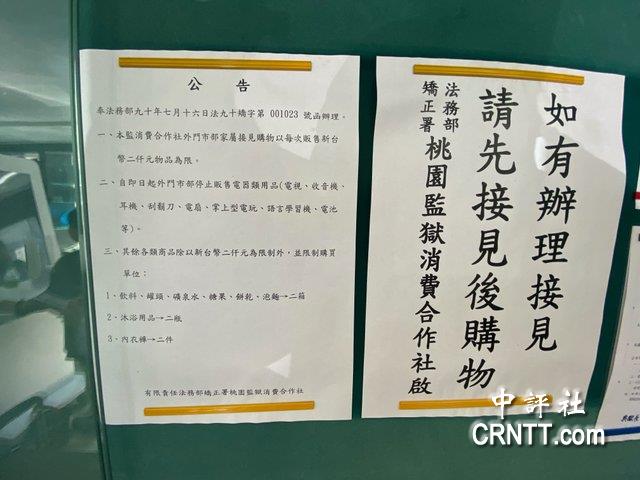 公告
奉法務部九十年七月十六日法九十矯字第 001023 號函辦理。
一、本監消費合作社外門市部家屬接見購物以每次販售新台
幣二仟元物品為限。
二、自即日起外門市部停止販售電器類用品(電視、收音機、
耳機、刮鬍刀、電扇、掌上型電玩、語言學習機、電池
等)。
三、其餘各類商品除以新台幣二仟元為限制外,並限制購買
單位:
1、飲料、罐頭、礦泉水、糖果、餅乾、泡麵→二箱
2、沐浴用品→二瓶
3、內衣褲→二件
有限責任法務部矯正署桃園監獄消費合作社
如有辦理接見
請先接見後購物
法務部
矯正署
桃園監獄消費合作社啟
中評社
CRNTT.com